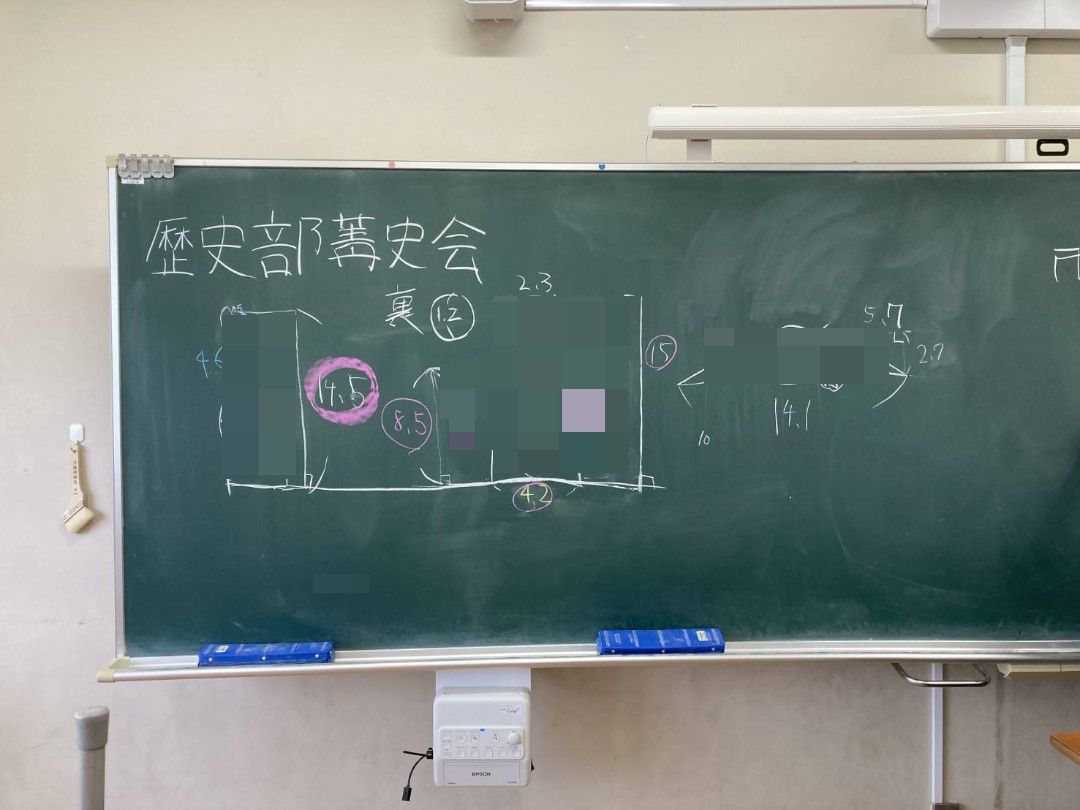 歴史部菁史会
裏 1.2
2.3
4.6
14.5
8.5
15
4.2
5.7
2.7
14.1
10
EPSON